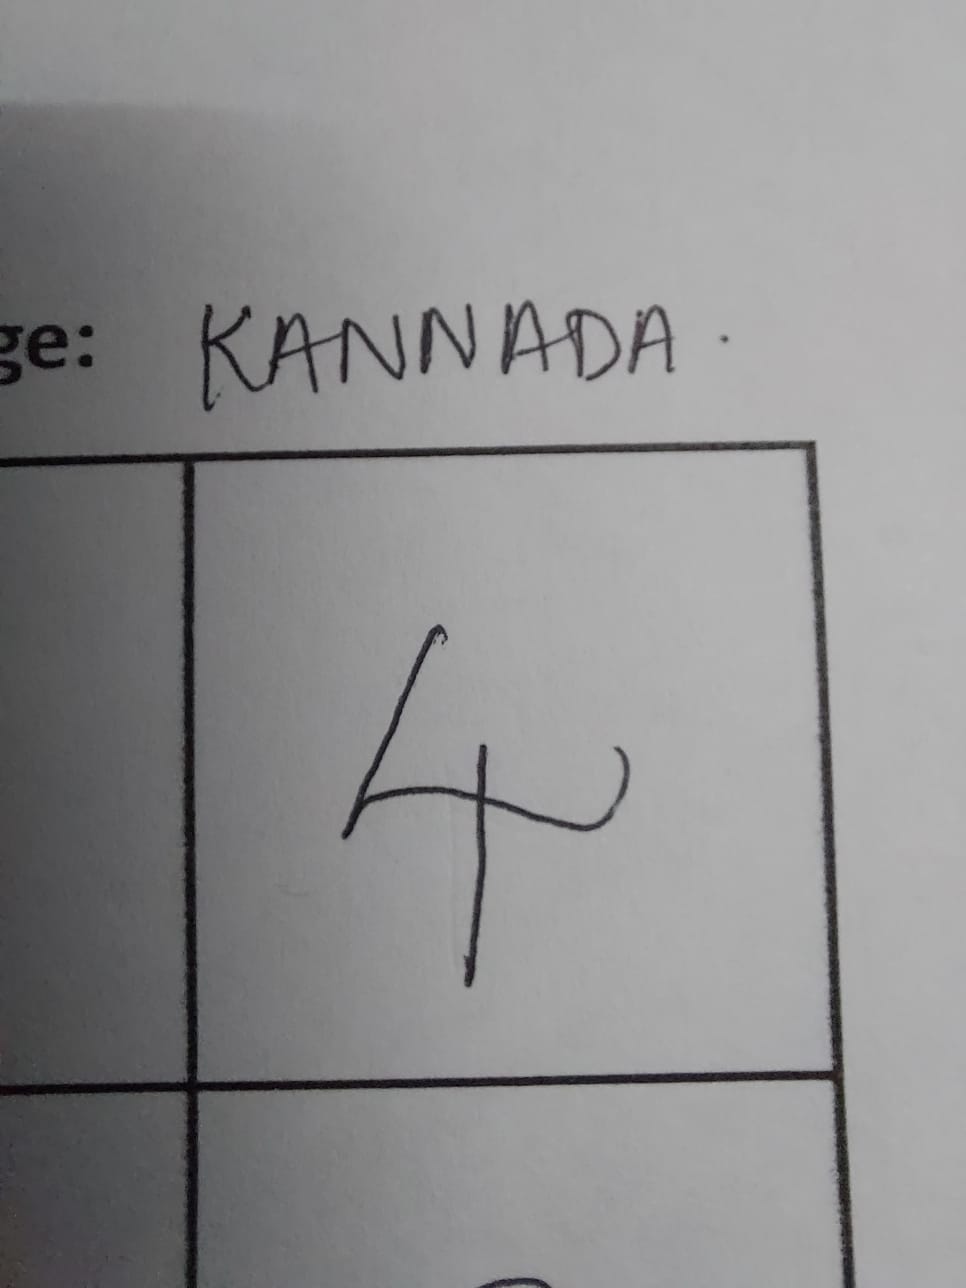 ge: KANNADA.
4